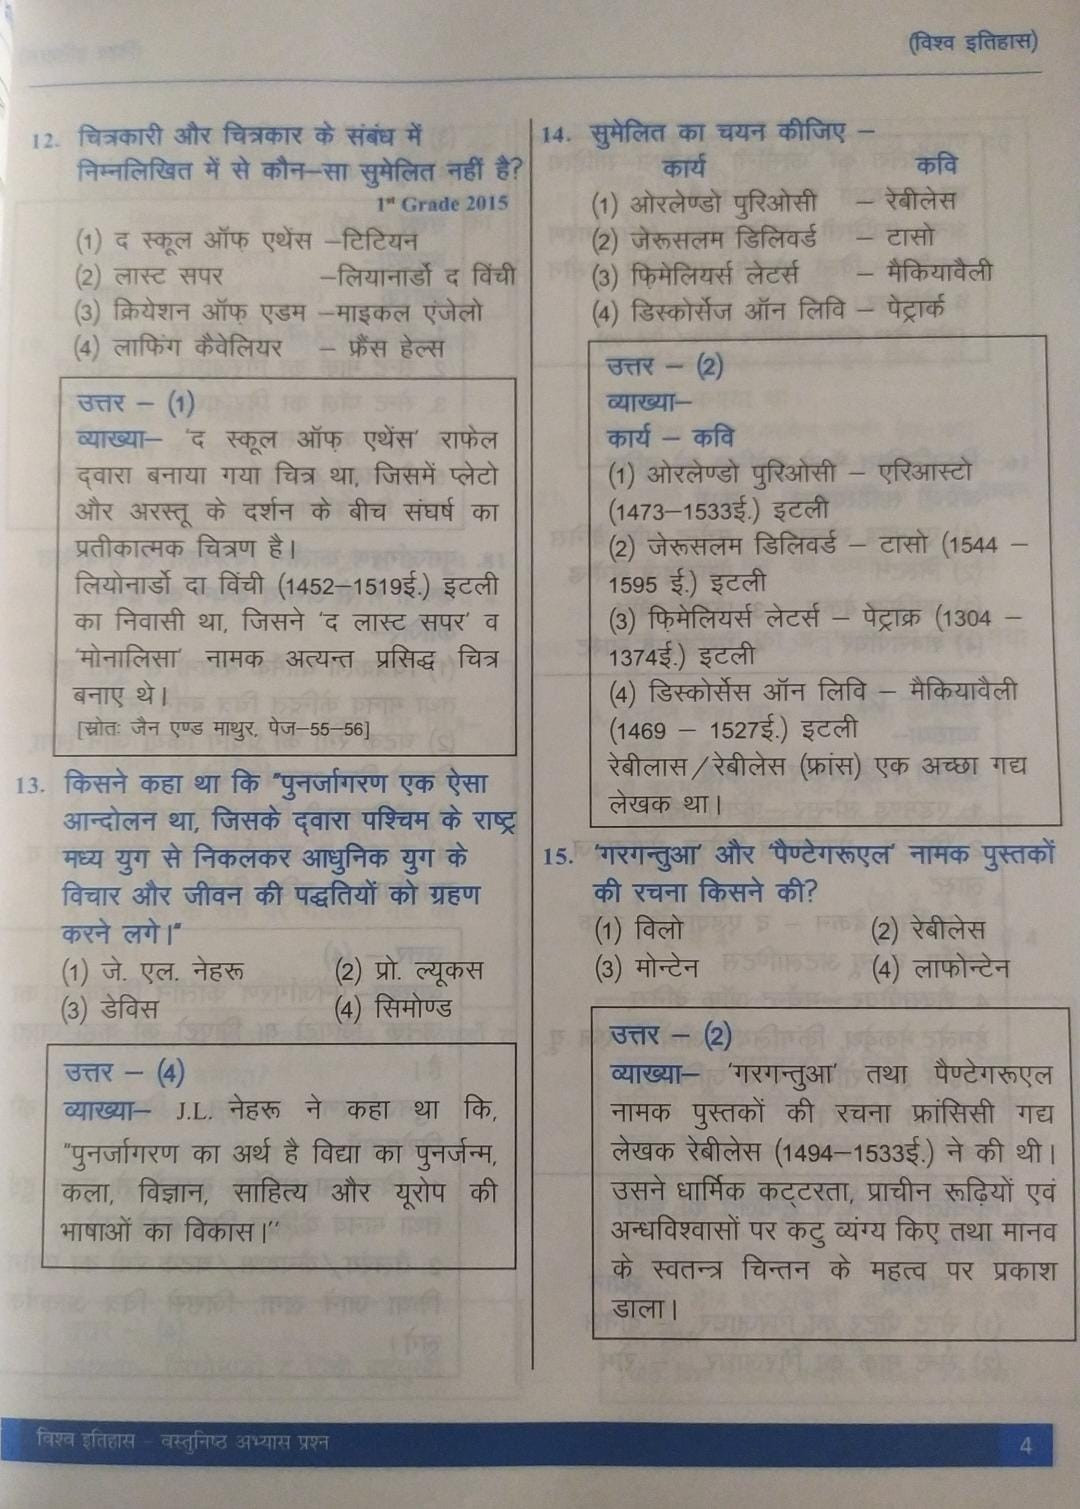 (विश्व इतिहास)
12. चित्रकारी और चित्रकार के संबंध में
निम्नलिखित में से कौन–सा सुमेलित नहीं है?
1st Grade 2015
(1) द स्कूल ऑफ़ एथेंस –टिटियन
(2) लास्ट सपर –लियानार्डो द विंची
(3) क्रियेशन ऑफ़ एडम –माइकल एंजेलो
(4) लाफिंग कैवेलियर – फ्रैंस हेल्स
उत्तर – (1)
व्याख्या– 'द स्कूल ऑफ़ एथेंस' राफेल
द्वारा बनाया गया चित्र था, जिसमें प्लेटो
और अरस्तू के दर्शन के बीच संघर्ष का
प्रतीकात्मक चित्रण है।
लियोनार्डो दा विंची (1452–1519ई.) इटली
का निवासी था, जिसने 'द लास्ट सपर' व
'मोनालिसा' नामक अत्यन्त प्रसिद्ध चित्र
बनाए थे।
[स्रोतः जैन एण्ड माथुर, पेज–55–56]
13. किसने कहा था कि "पुनर्जागरण एक ऐसा
आन्दोलन था, जिसके द्वारा पश्चिम के राष्ट्र
मध्य युग से निकलकर आधुनिक युग के
विचार और जीवन की पद्धतियों को ग्रहण
करने लगे।"
(1) जे. एल. नेहरू (2) प्रो. ल्यूकस
(3) डेविस (4) सिमोण्ड
उत्तर – (4)
व्याख्या– J.L. नेहरू ने कहा था कि,
"पुनर्जागरण का अर्थ है विद्या का पुनर्जन्म,
कला, विज्ञान, साहित्य और यूरोप की
भाषाओं का विकास।''
14. सुमेलित का चयन कीजिए –
कार्य कवि
(1) ओरलेण्डो पुरिओसी – रेबीलेस
(2) जेरूसलम डिलिवर्ड – टासो
(3) फ़िमेलियर्स लेटर्स – मैकियावैली
(4) डिस्कोर्सेज ऑन लिवि – पेट्रार्क
उत्तर – (2)
व्याख्या–
कार्य – कवि
(1) ओरलेण्डो पुरिओसी – एरिआस्टो
(1473–1533ई.) इटली
(2) जेरूसलम डिलिवर्ड – टासो (1544 –
1595 ई.) इटली
(3) फ़िमेलियर्स लेटर्स – पेट्राक्र (1304 –
1374ई.) इटली
(4) डिस्कोर्सेस ऑन लिवि – मैकियावैली
(1469 – 1527ई.) इटली
रेबीलास/रेबीलेस (फ्रांस) एक अच्छा गद्य
लेखक था।
15. 'गरगन्तुआ' और 'पैण्टेगरूएल' नामक पुस्तकों
की रचना किसने की?
(1) विलो (2) रेबीलेस
(3) मोन्टेन (4) लाफोन्टेन
उत्तर – (2)
व्याख्या– 'गरगन्तुआ' तथा पैण्टेगरूएल
नामक पुस्तकों की रचना फ्रांसिसी गद्य
लेखक रेबीलेस (1494–1533ई.) ने की थी।
उसने धार्मिक कट्टरता, प्राचीन रूढ़ियों एवं
अन्धविश्वासों पर कटु व्यंग्य किए तथा मानव
के स्वतन्त्र चिन्तन के महत्व पर प्रकाश
डाला।
विश्व इतिहास – वस्तुनिष्ठ अभ्यास प्रश्न 4